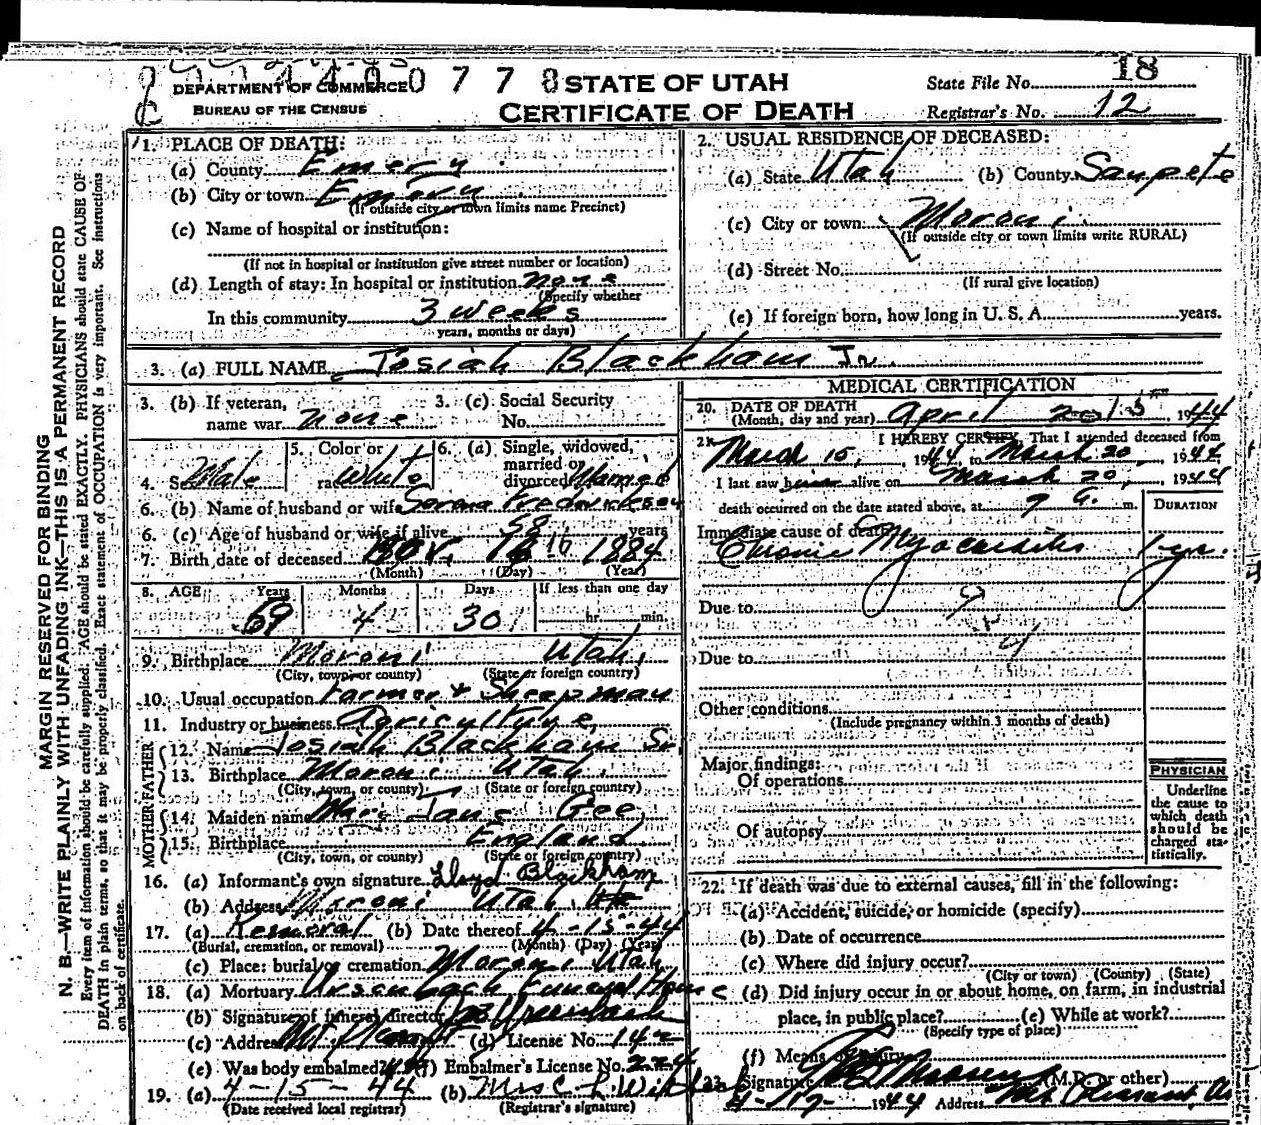 DEPARTMENT OF COMMERCE
BUREAU OF THE CENSUS
0 7 7 8
STATE OF UTAH
CERTIFICATE OF DEATH
State File No. 18
Registrar's No. 12
MARGIN RESERVED FOR BINDING
N. B.—WRITE PLAINLY WITH UNFADING INK—THIS IS A PERMANENT RECORD
Every item of information should be carefully supplied. AGE should be stated EXACTLY. PHYSICIANS should state CAUSE OF
DEATH in plain terms, so that it may be properly classified. Exact statement of OCCUPATION is very important. See instructions
on back of certificate.
1. PLACE OF DEATH:
(a) County Emery
(b) City or town Emery
(If outside city or town limits name Precinct)
(c) Name of hospital or institution:
(If not in hospital or institution give street number or location)
(d) Length of stay: In hospital or institution none
(Specify whether
In this community 3 weeks
years, months or days)
2. USUAL RESIDENCE OF DECEASED:
(a) State Utah (b) County Sanpete
(c) City or town Moroni
(If outside city or town limits write RURAL)
(d) Street No.
(If rural give location)
(e) If foreign born, how long in U. S. A. years.
3. (a) FULL NAME Josiah Blackham Jr.
3. (b) If veteran, name war none
3. (c) Social Security No.
4. Sex Male
5. Color or race White
6. (a) Single, widowed, married or divorced Married
6. (b) Name of husband or wife Sorena Fredericksen
6. (c) Age of husband or wife if alive 58 years
7. Birth date of deceased Nov. 16 1884
(Month) (Day) (Year)
8. AGE Years Months Days If less than one day
69 4 30 hr. min.
9. Birthplace Moroni Utah
(City, town, or county) (State or foreign country)
10. Usual occupation Farmer & Sheepman
11. Industry or business Agriculture
FATHER
12. Name Josiah Blackham Sr
13. Birthplace Moroni Utah
(City, town, or county) (State or foreign country)
MOTHER
14. Maiden name Jane Gee
15. Birthplace England
(City, town, or county) (State or foreign country)
16. (a) Informant's own signature Lloyd Blackham
(b) Address Moroni Utah
17. (a) Removal (b) Date thereof 4-15-44
(Burial, cremation, or removal) (Month) (Day) (Year)
(c) Place: burial or cremation Moroni Utah
18. (a) Mortuary Ursenbach Funeral Home
(b) Signature of funeral director
(c) Address Mt Pleasant (d) License No. 142
(e) Was body embalmed? (f) Embalmer's License No. 224
19. (a) 4-15-44 (b) Mrs C L
(Date received local registrar) (Registrar's signature)
MEDICAL CERTIFICATION
20. DATE OF DEATH
(Month, day and year) April 15 1944
21. I HEREBY CERTIFY, That I attended deceased from
March 15, 1944 to March 20, 1944
I last saw him alive on March 20, 1944
death occurred on the date stated above, at 9 a. m.
DURATION
Immediate cause of death
Chronic Myocarditis 1 yr.
Due to
Due to
Other conditions
(Include pregnancy within 3 months of death)
Major findings:
Of operations
Of autopsy
PHYSICIAN
Underline
the cause to
which death
should be
charged sta-
tistically.
22. If death was due to external causes, fill in the following:
(a) Accident, suicide, or homicide (specify)
(b) Date of occurrence
(c) Where did injury occur?
(City or town) (County) (State)
(d) Did injury occur in or about home, on farm, in industrial
place, in public place? (e) While at work?
(Specify type of place)
(f) Means of injury
23. Signature (M.D. or other)
4-17- 1944 Address Mt. Pleasant, Ut